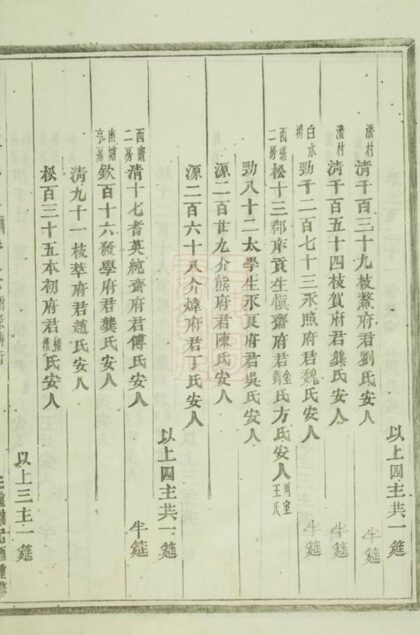 以上四主共一筵
潘村 清千百三十九枝鰲府君劉氏安人 半筵
潘村 清千百五十四枝賀府君龔氏安人 半筵
白水 勁千二百七十三永照府君魏氏安人 半筵
西齋二房 松十三郡庠貢生慎齋府君金氏方氏安人 王氏
勁八十二太學生永夏府君吳氏安人
源二百廿九介熊府君陳氏安人
源二百六十八介煒府君丁氏安人
以上四主共一筵
西齋二房 清十七耆英純齋府君傅氏安人 半筵
南塘 欽百十六發學府君龔氏安人
清九十一枝萃府君趙氏安人
松百三十五本初府君 氏安人
以上三主一筵